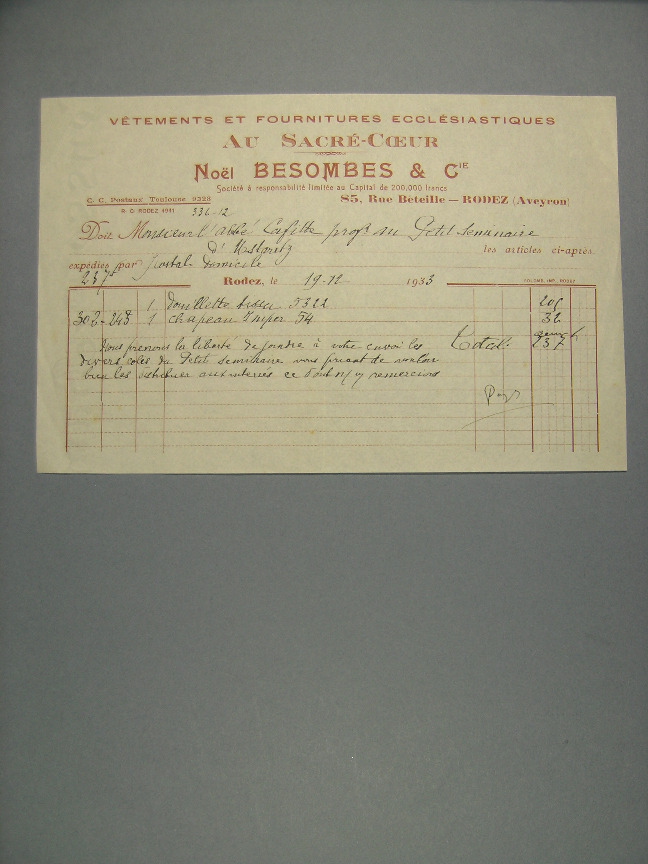 VÊTEMENTS ET FOURNITURES ECCLÉSIASTIQUES
AU SACRÉ-CŒUR
Noël BESOMBES & CIE
Société à responsabilité limitée au Capital de 200.000 francs
C. C. Postaux Toulouse 9328
85, Rue Beteille — RODEZ (Aveyron)
R. C. RODEZ 1931
336-12
Doit Monsieur l'abbé Lafitte profr au Petit Seminaire
d'Ustaritz
les articles ci-après
expédiés par postal domicile
237
Rodez, le 19-12 1933
COLOMB, IMP., RODEZ
1 douillette 5322 205
302-248 1 chapeau 54 32
Nous prenons la liberté de joindre à votre envoi les Total: 237
divers colis du Petit seminaire vous priant de vouloir
bien les aux interessés ce dont n/ v/ remercions
Payé